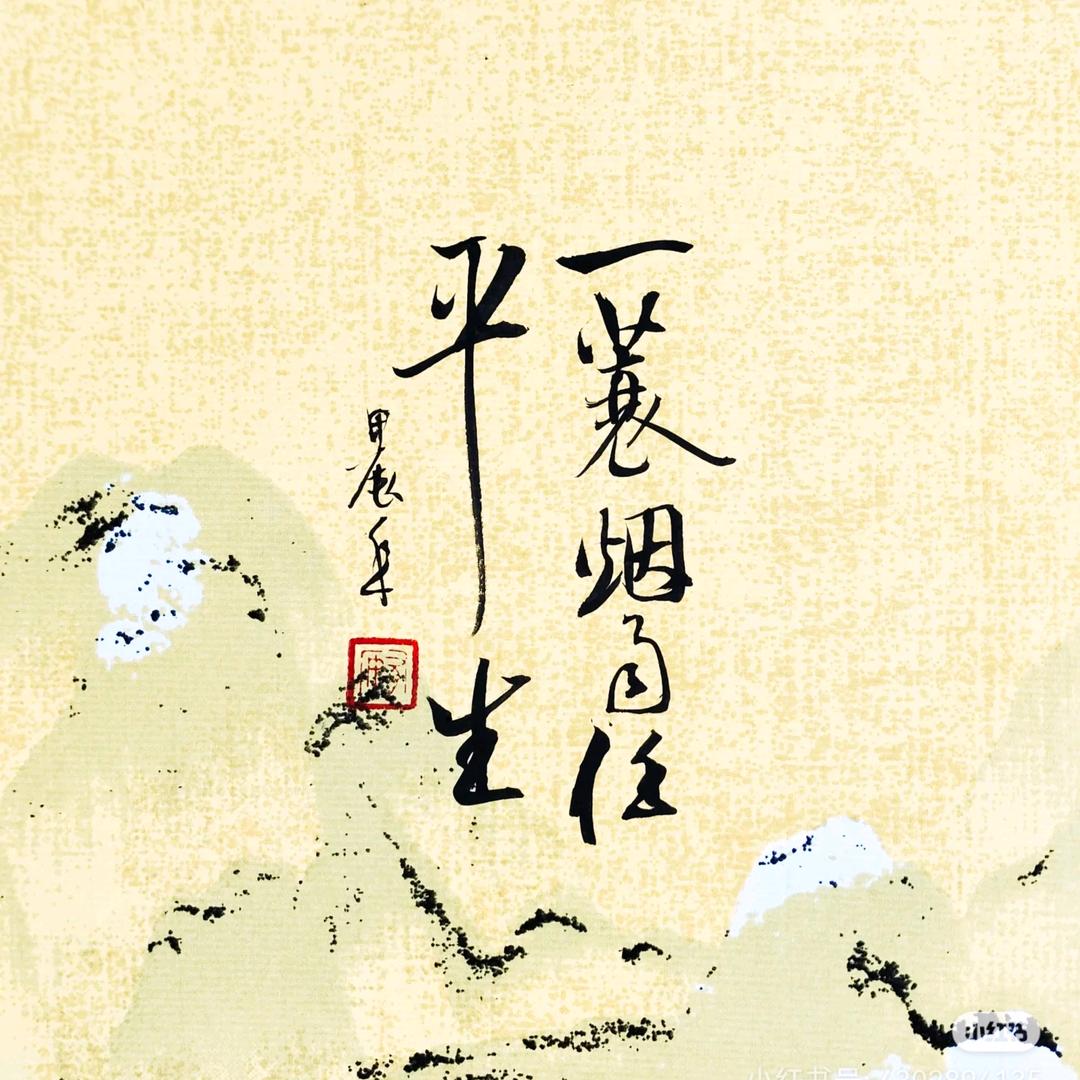 一蓑烟雨任
平生
甲辰年
小红书